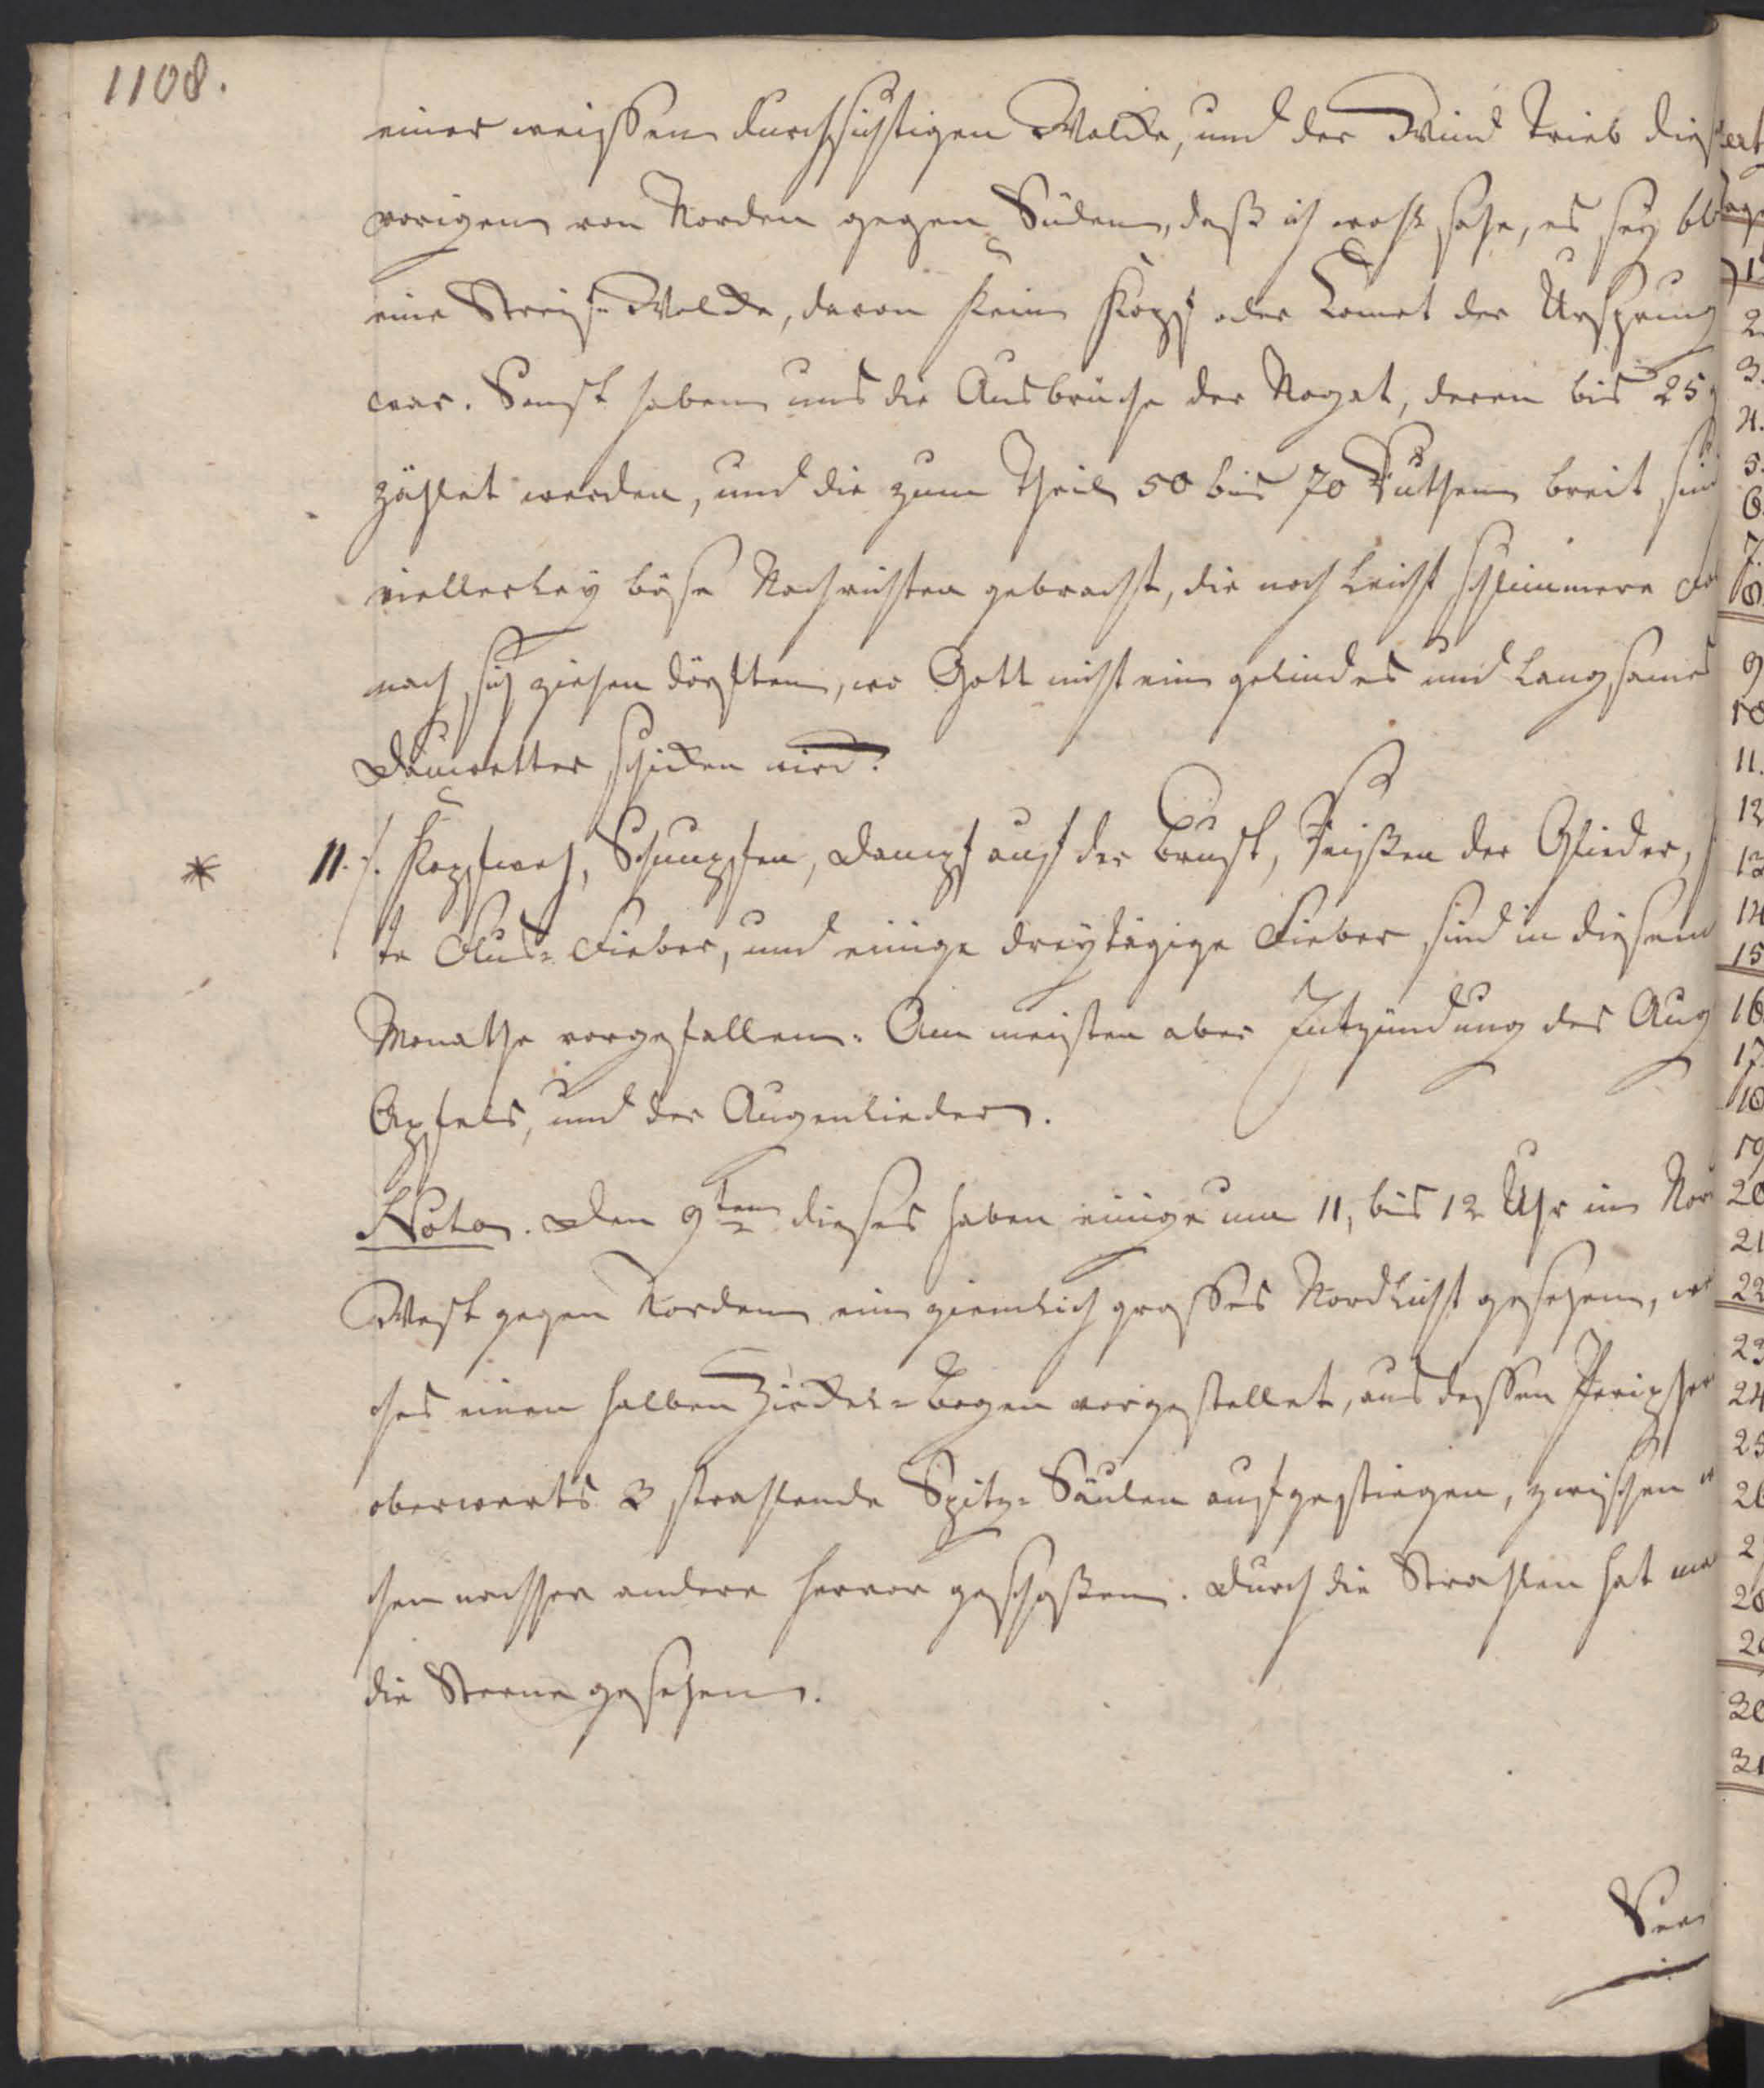 1108.
einer weissen durchsichtigen Wolcke, und der Wind trieb dies
vorigen von Norden gegen Süden, daß ich wohl sahe, es sey bl
eine Streif-Wolcke, davon kein Kopf oder Comet der Ursprung
war. Sonst haben uns die Ausbrüche der Nogat, deren bis 25
zählet werden, und die zum Theil 50 bis 70 Ruthen breit sind
vielerley böse Nachrichten gebracht, die noch leicht schlimmere
nach sich ziehen dörfften, wo Gott nicht ein gelindes und langsames
Dauwetter schicken wird.
* 11. /. Kopfweh, Schnupfen, Dampf auf der Brust, Reißen der Glieder,
te Fieber, und einige dreytägige Fieber sind in diesem
Monathe vorgefallen. Am meisten aber Entzündung des Aug
Apfels, und der Augenlieder.
Nota. Den 9ten dieses haben einige um 11, bis 12 Uhr in Nor
West gegen Norden ein ziemlich grosses Nordlicht gesehen, we
ches einen halben Zirckel-Bogen vorgestellet, aus dessen Peripher
oberwerts 3 strahlende Spitz-Säulen aufgestiegen, zwischen w
chen nachher andere hervor geschossen. Durch die Strahlen hat ma
die Sterne gesehen.
ert
1
2
3.
4.
5.
6.
7.
8.
9
10
11.
12
13
14
15
16
17.
18
19
20
21
22
23
24
25
26
2
28
2
30
31